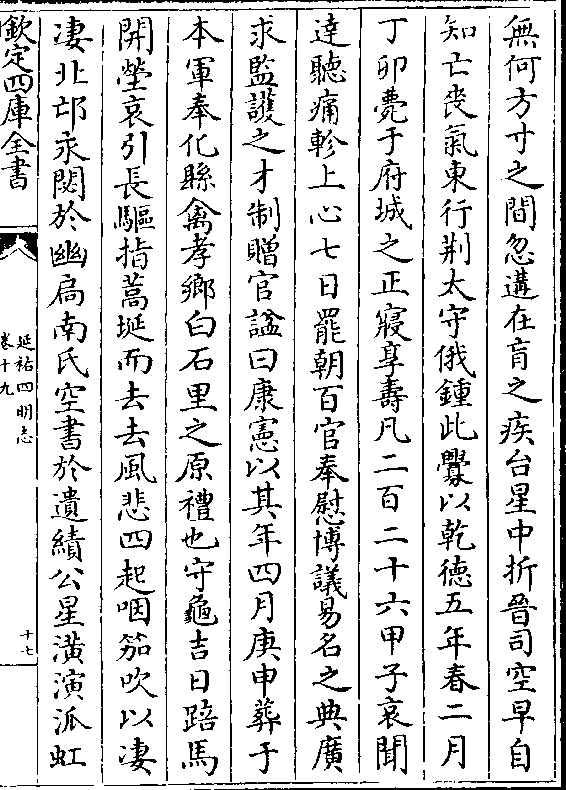 無何方寸之間忽遘在肓之疾台星中折晉司空早自
知亡喪氣東行荆太守俄鍾此釁以乾德五年春二月
丁卯薨于府城之正寢享壽凡二百二十六甲子哀聞
達聽痛軫上心七日罷朝百官奉慰博議易名之典廣
求監護之才制贈官諡曰康憲以其年四月庚申葬于
本軍奉化縣禽孝鄉白石里之原禮也守龜吉日踣馬
開塋哀引長驅指蒿埏而去去風悲四起咽笳吹以凄
凄北邙永閟於幽扃南氏空書於遺績公星潢演派虹
欽定四庫全書
延祐四明志
卷十九
十七